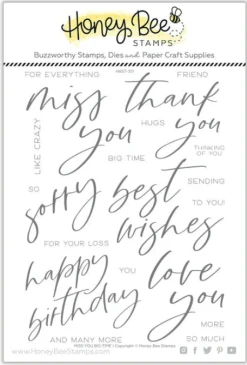 Honey Bee
STAMPS
Buzzworthy Stamps, Dies and Paper Craft Supplies
FOR EVERYTHING
FRIEND
miss
you
thank
you
LIKE CRAZY
HUGS
BIG TIME
THINKING
OF YOU
SO
sorry
best
wishes
SENDING
TO YOU!
FOR YOUR LOSS
happy
birthday
YOU
love
you
MORE
AND MANY MORE
SO MUCH
MISS YOU BIG TIME | Copyright © Honey Bee Stamps
www.HoneyBeeStamps.com